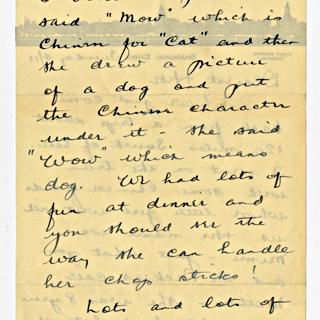 said "Mow" which is
Chinese for "Cat" and then
she drew a picture
of a dog and put
the Chinese character
under it - she said
"Wow" which means
dog. We had lots of
fun at dinner and
you should see the
way she can handle
her chop sticks!
Lots and lots of